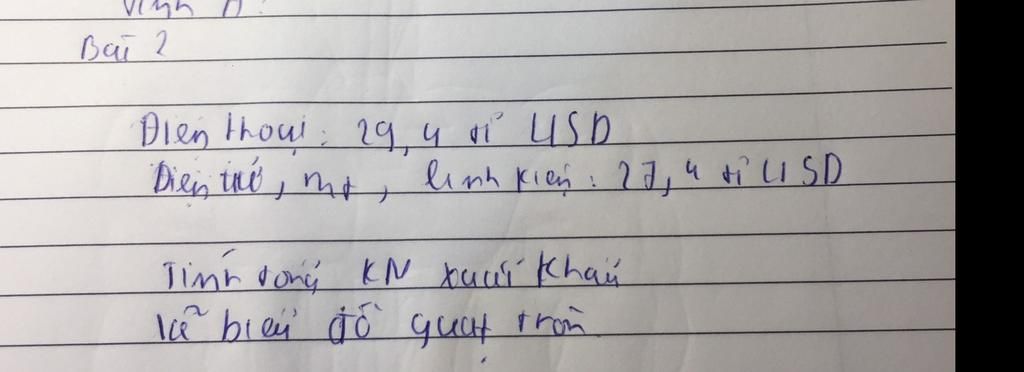 Bài 2
Điện thoại: 29,4 tỉ USD
Điện tử, mt, linh kiện: 27,4 tỉ USD
Tính tổng KN xuất khẩu
Vẽ biểu đồ quạt tròn